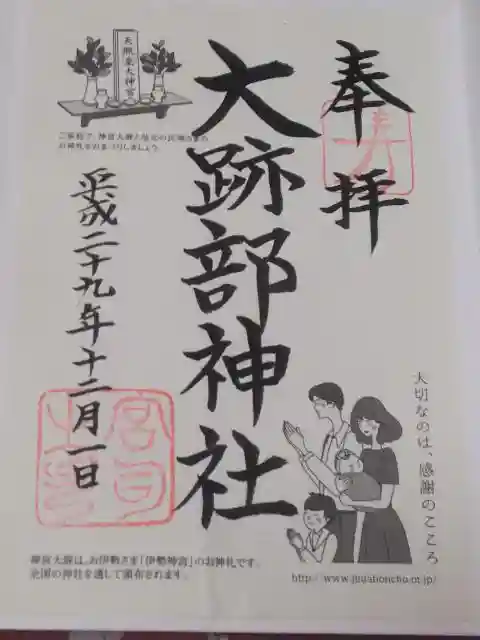 奉拝
大跡部神社
平成二十九年十二月一日
天照皇大神宮
ご家庭で、神宮大麻と地元の氏神さまの
お神札をおまつりしましょう。
大切なのは、感謝のこころ
宮司
神宮大麻は、お伊勢さま「伊勢神宮」のお神札です。
全国の神社を通して頒布されます。
http://www.jinjahoncho.or.jp/